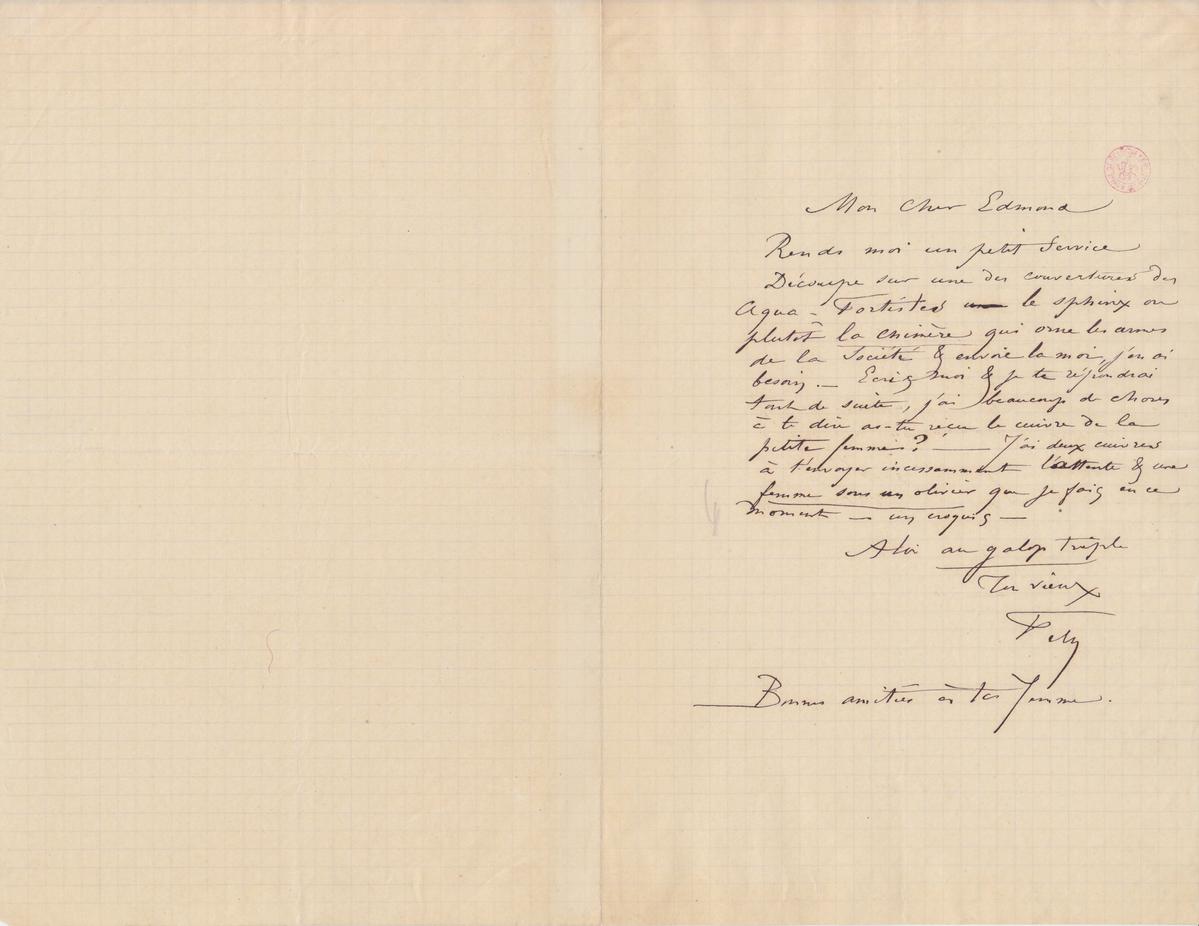 Mon cher Edmond
Rends moi un petit service
Découpe sur une des couvertures des
Aqua-Fortistes le sphinx ou
plutôt la chimère qui orne les armes
de la Société & envoie la moi, j'en ai
besoin. — Ecris moi & je te répondrai
tout de suite, j'ai beaucoup de choses
à te dire as-tu reçu le cuivre de la
petite femme? — J'ai deux cuivres
à t'envoyer incessamment l'attente & une
femme sous un olivier que je fais en ce
moment — un croquis —
A toi au galop triple
Ton vieux
Fély
Bonnes amitiés à ta femme.